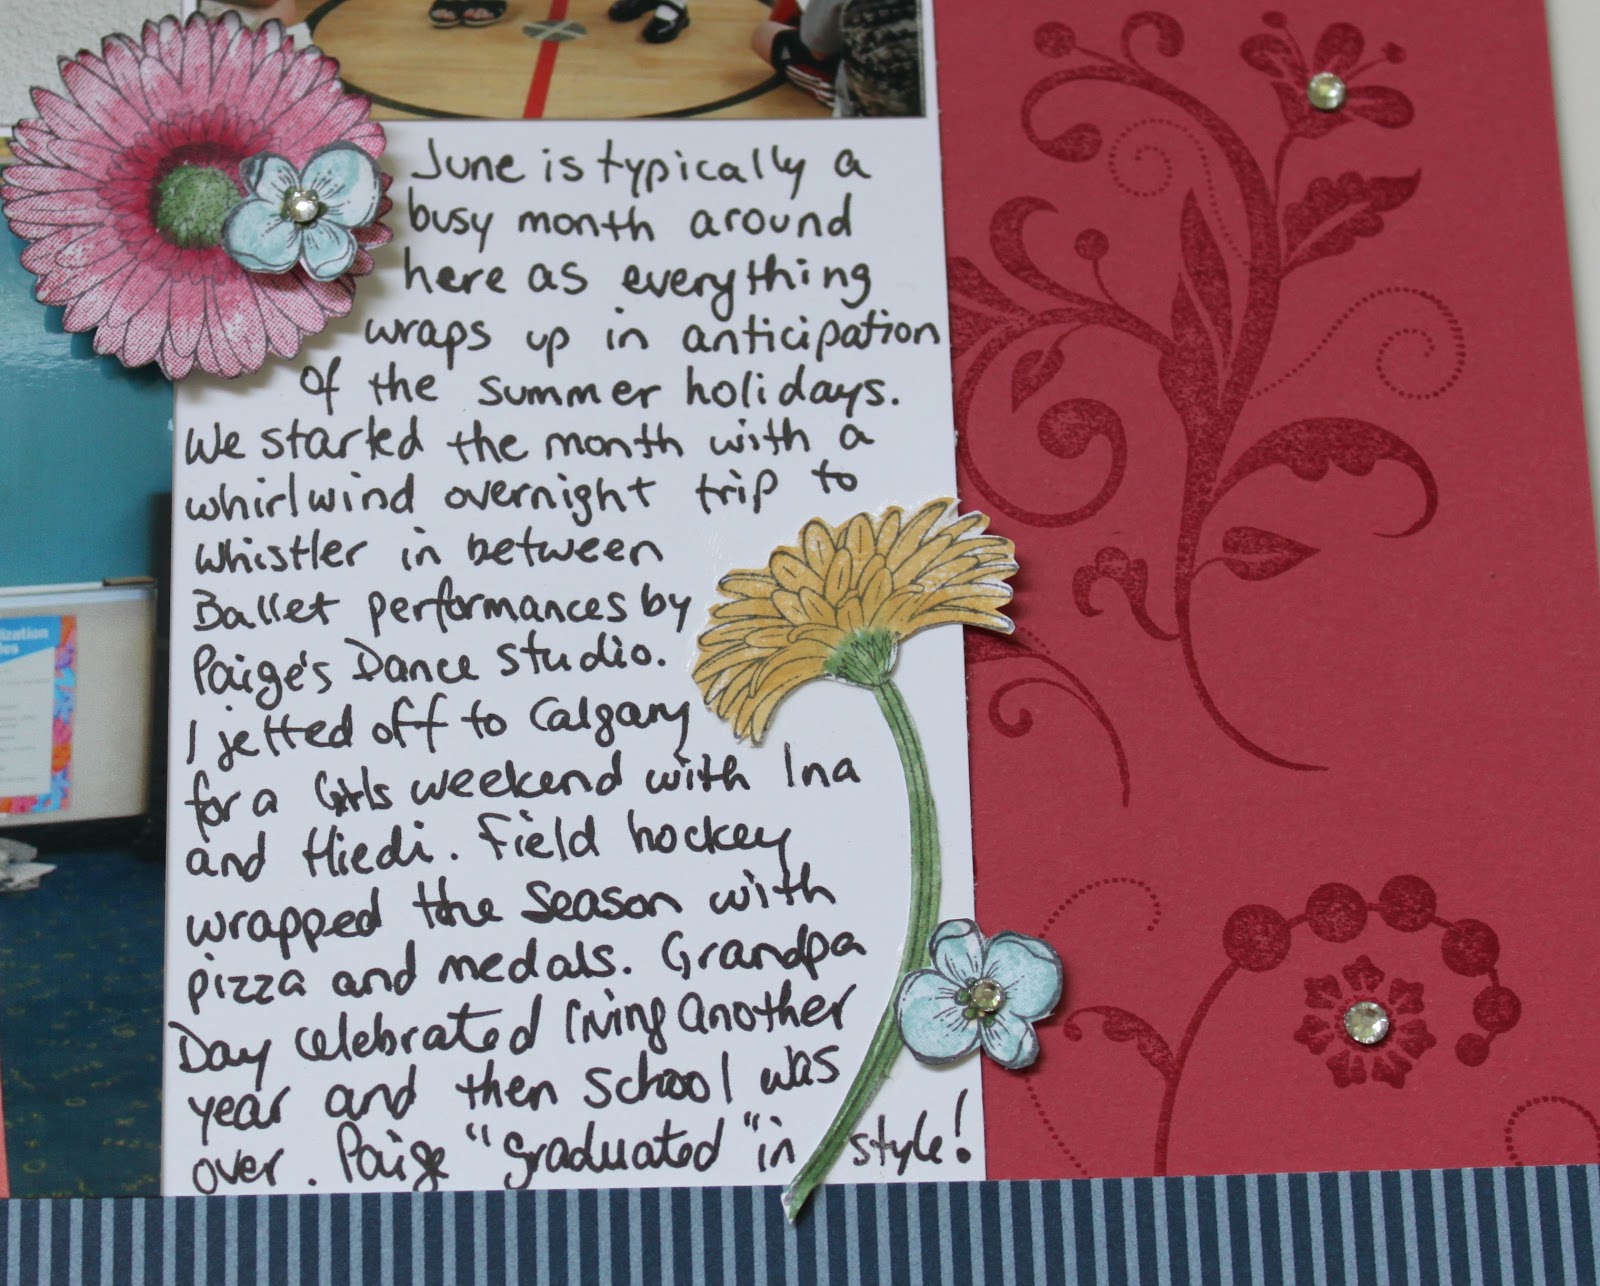 June is typically a
busy month around
here as everything
wraps up in anticipation
of the summer holidays.
We started the month with a
whirlwind overnight trip to
Whistler in between
Ballet performances by
Paige's Dance Studio.
I jetted off to Calgary
for a Girls weekend with Ina
and Hiedi. Field hockey
wrapped the season with
pizza and medals. Grandpa
Day celebrated living another
year and then school was
over. Paige "graduated" in style!